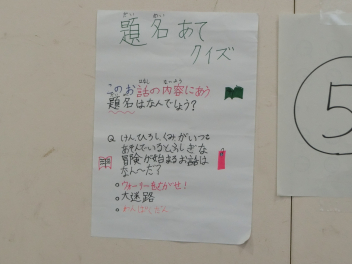 題名あて
クイズ
このお話の内容にあう
題名はなんでしょう?
Q けん、ひろし、くみがいつも
あそんでいるとふしぎな
冒険が始まるお話は
なん〜だ?
○ウォーリーをさがせ!
○大迷路
5